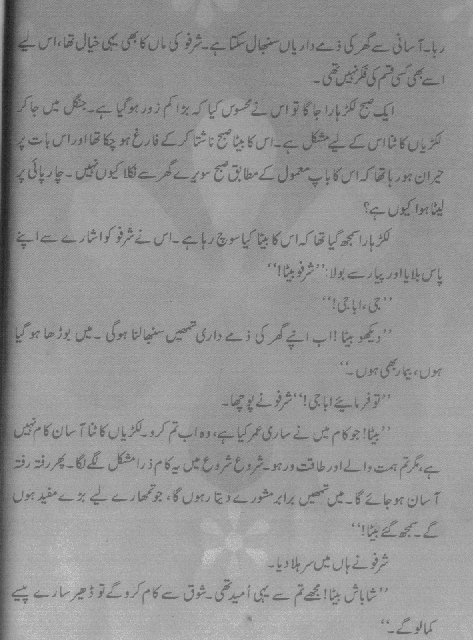 رہا۔ آسانی سے گھر کی ذمے داریاں سنبھال سکتا ہے۔ شرفو کی ماں کا بھی یہی خیال تھا، اس لیے
اسے بھی کسی قسم کی فکر نہیں تھی۔
ایک صبح لکڑہارا جاگا تو اس نے محسوس کیا کہ بڑا کم زور ہوگیا ہے۔ جنگل میں جا کر
لکڑیاں کاٹنا اس کے لیے مشکل ہے۔ اس کا بیٹا صبح ناشتا کر کے فارغ ہو چکا تھا اور اس بات پر
حیران ہو رہا تھا کہ اس کا باپ معمول کے مطابق صبح سویرے گھر سے نکلا کیوں نہیں۔ چارپائی پر
لیٹا ہوا کیوں ہے؟
لکڑہارا سمجھ گیا تھا کہ اس کا بیٹا کیا سوچ رہا ہے۔ اس نے شرفو کو اشارے سے اپنے
پاس بلایا اور پیار سے بولا: ’’شرفو بیٹا!‘‘
’’جی، ابا جی!‘‘
’’دیکھو بیٹا! اب اپنے گھر کی ذمے داری تمھیں سنبھالنا ہوگی۔ میں بوڑھا ہو گیا
ہوں، بیمار بھی ہوں۔‘‘
’’تو فرمائیے ابا جی!‘‘ شرفو نے پوچھا۔
’’بیٹا! جو کام میں نے ساری عمر کیا ہے، وہ اب تم کرو۔ لکڑیاں کاٹنا آسان کام نہیں
ہے، مگر تم ہمت والے اور طاقت ور ہو۔ شروع شروع میں یہ کام ذرا مشکل لگے گا۔ پھر رفتہ رفتہ
آسان ہو جائے گا۔ میں تمھیں برابر مشورے دیتا رہوں گا، جو تمھارے لیے بڑے مفید ہوں
گے۔ سمجھ گئے بیٹا!‘‘
شرفو نے ہاں میں سر ہلا دیا۔
’’شاباش بیٹا! مجھے تم سے یہی اُمید تھی۔ شوق سے کام کرو گے تو ڈھیر سارے پیسے
کمالو گے۔‘‘